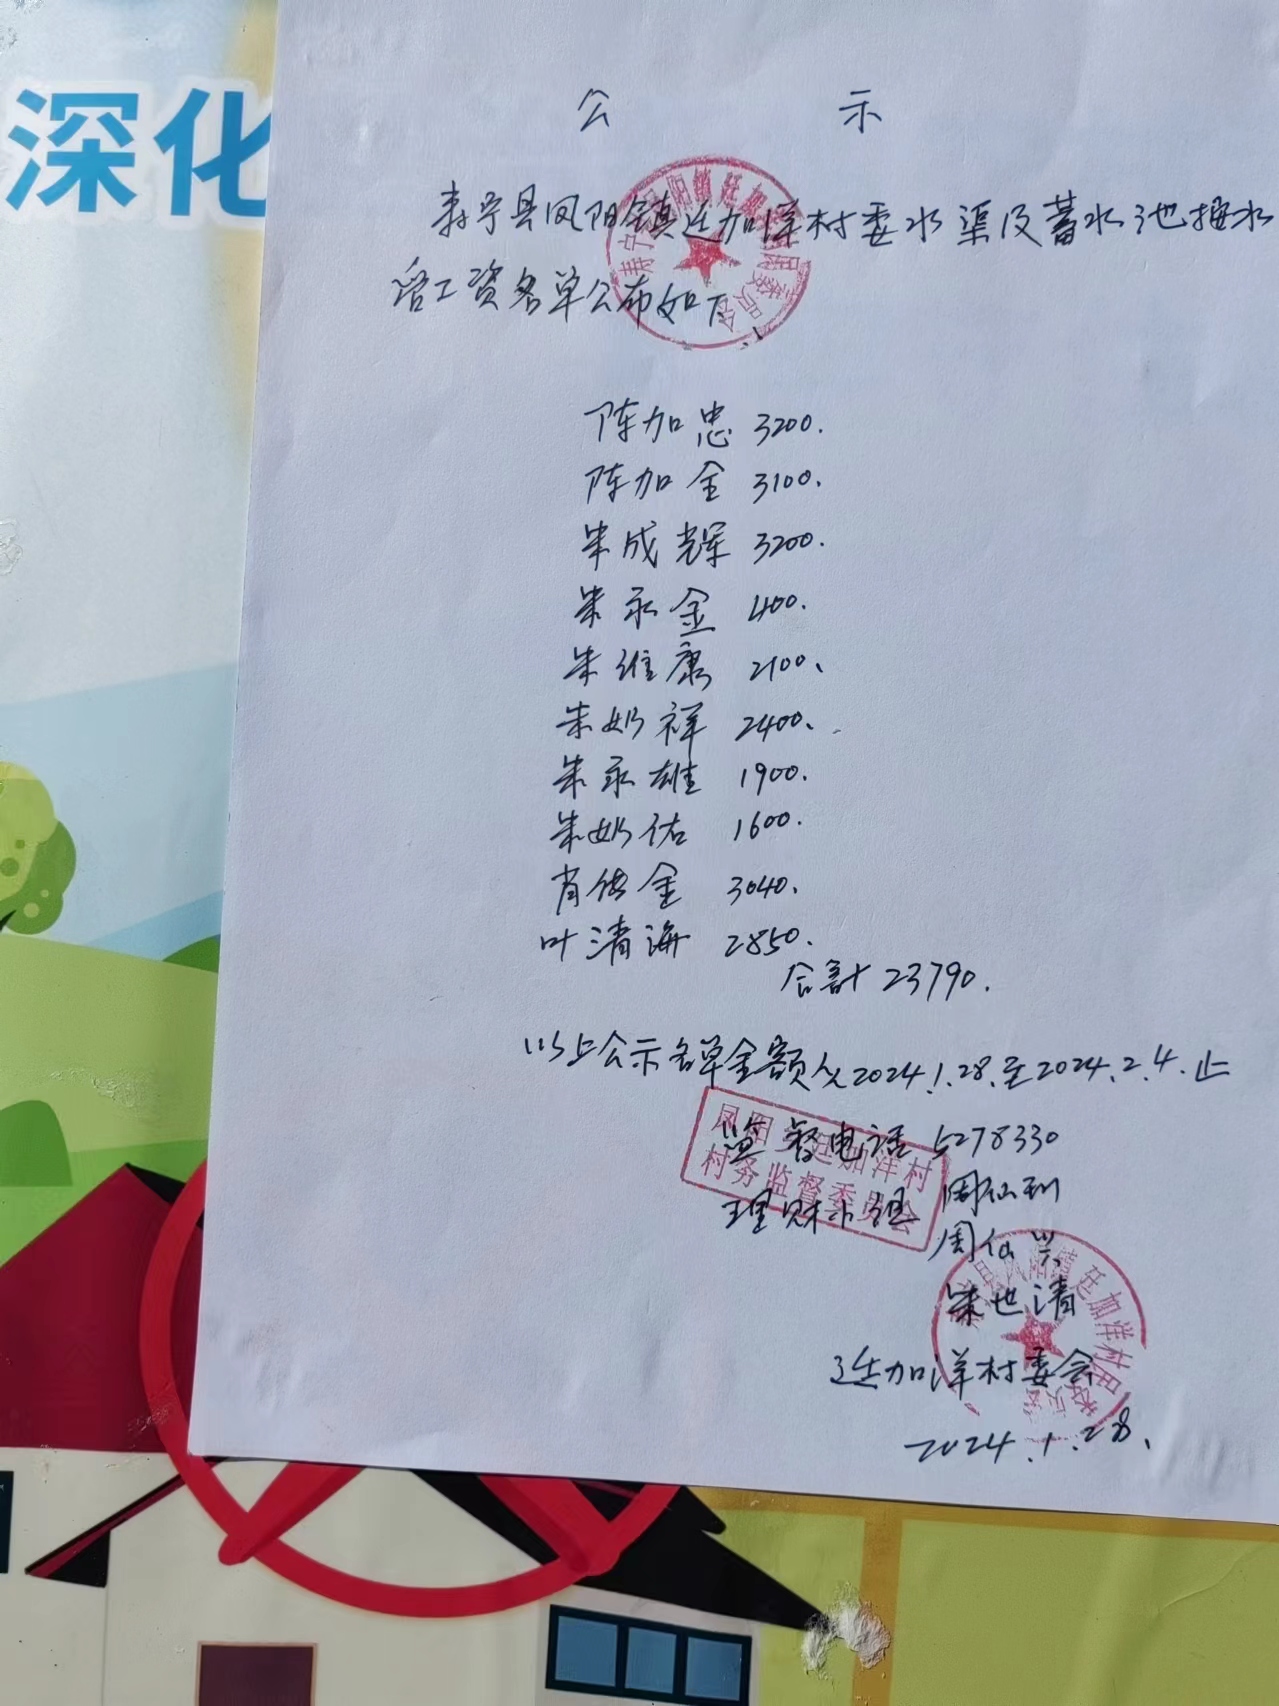 深化
公 示
寿宁县凤阳镇廷加洋村委水渠及蓄水池接水
管工资名单公布如下:
陈加忠 3200.
陈加金 3100.
朱成辉 3200.
朱永金 400.
朱维康 2100.
朱奶祥 2400.
朱永雄 1900.
朱奶佑 1600.
肖传金 3040.
叶清海 2850.
合計 23790.
以上公示名单金额从2024.1.28.至2024.2.4.止
监督电话 5278330
凤阳镇廷加洋村
村务监督委员会
理财小组 周仙
周仙兴
朱也清
廷加洋村委会
2024.1.28.
寿宁县凤阳镇廷加洋村居民委员会